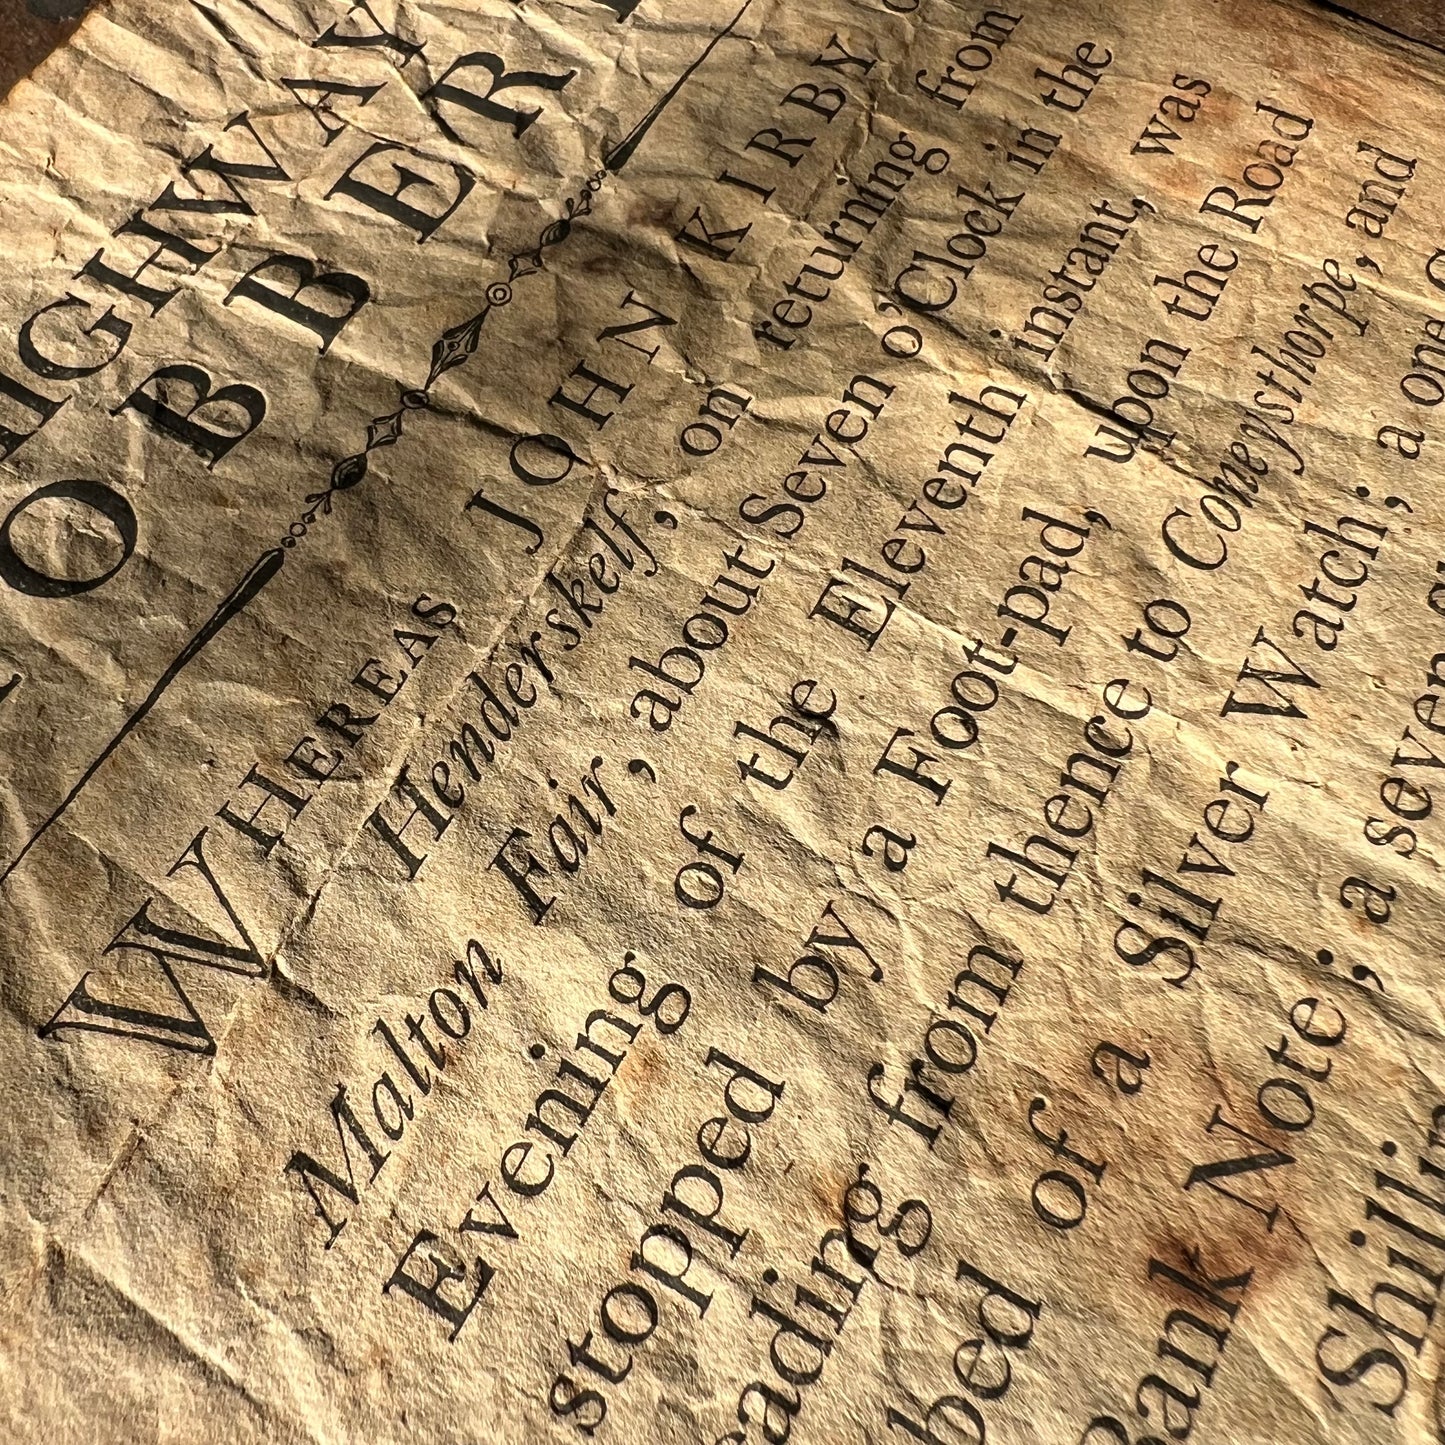 HIGHWAY
OBBER
WHEREAS JOHN KIRBY
Henderskelf, on returning from
Malton Fair, about Seven o'Clock in the
Evening of the Eleventh instant, was
stopped by a Foot-pad, upon the Road
eading from thence to Coneysthorpe, and
bed of a Silver Watch; a one
Bank Note; a seven
Shillin